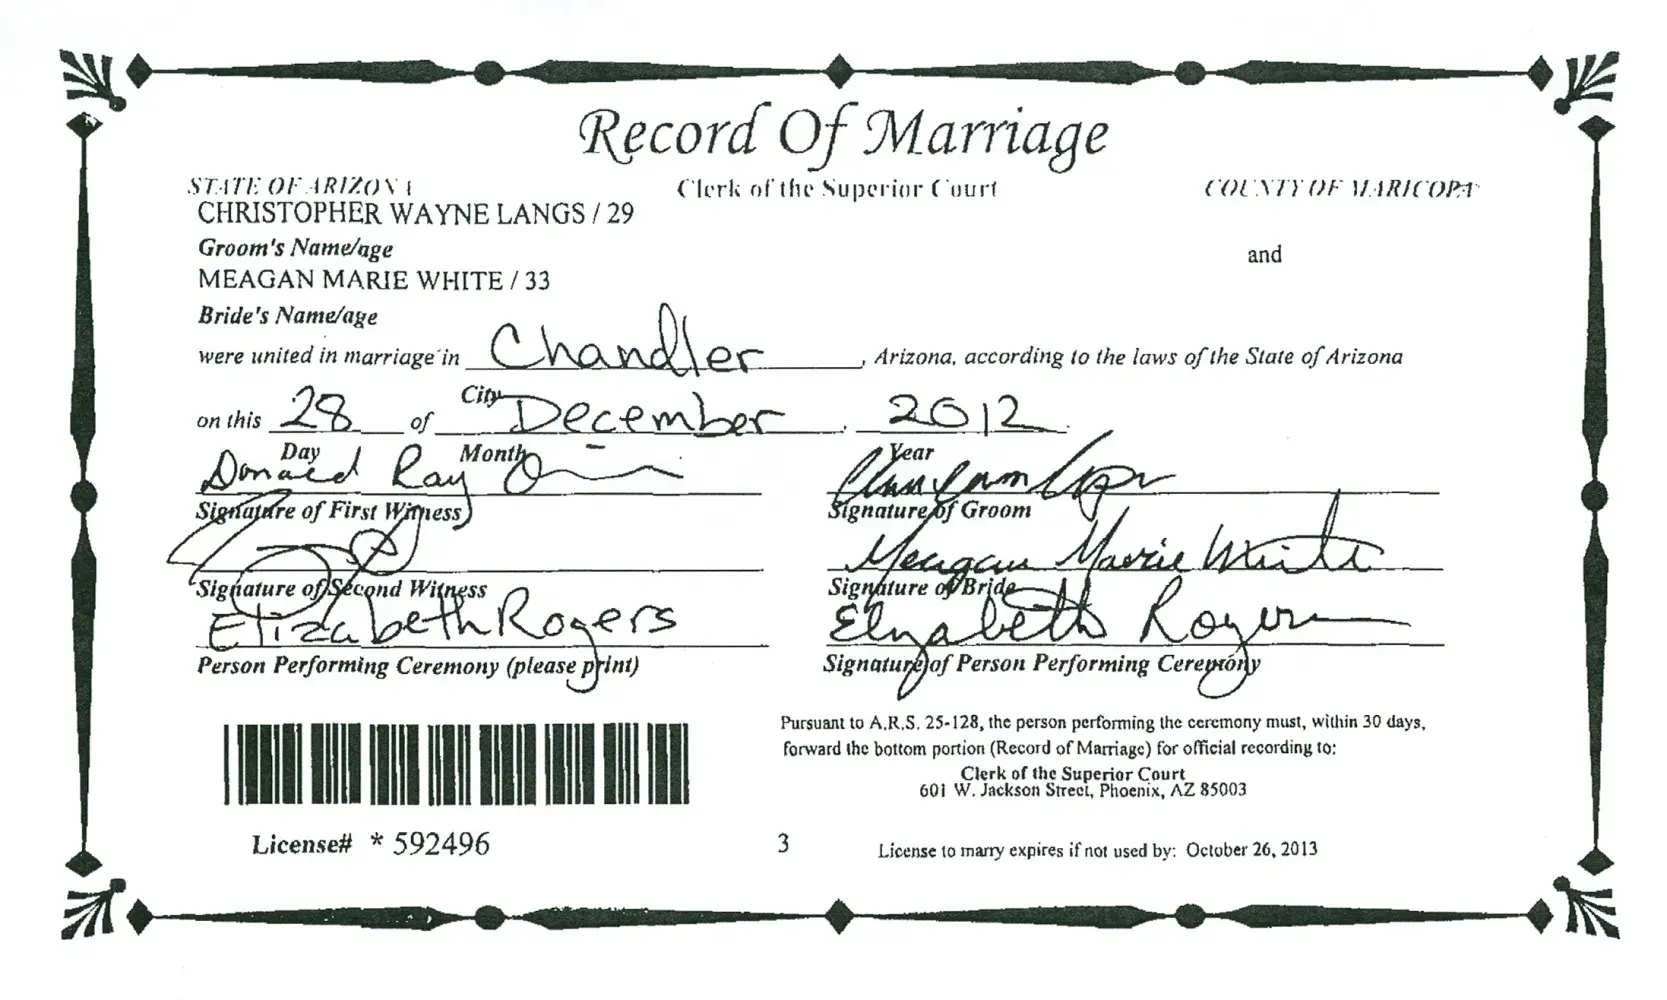 Record Of Marriage
STATE OF ARIZONA Clerk of the Superior Court COUNTY OF MARICOPA
CHRISTOPHER WAYNE LANGS / 29
Groom's Name/age and
MEAGAN MARIE WHITE / 33
Bride's Name/age
were united in marriage in Chandler, Arizona, according to the laws of the State of Arizona
City
on this 28 of December, 2012
Day Month Year
Donald Ray
Signature of First Witness Signature of Groom
Meagan Marie White
Signature of Second Witness Signature of Bride
Elizabeth Rogers Elizabeth Rogers
Person Performing Ceremony (please print) Signature of Person Performing Ceremony
Pursuant to A.R.S. 25-128, the person performing the ceremony must, within 30 days,
forward the bottom portion (Record of Marriage) for official recording to:
Clerk of the Superior Court
601 W. Jackson Street, Phoenix, AZ 85003
License# * 592496 3 License to marry expires if not used by: October 26, 2013